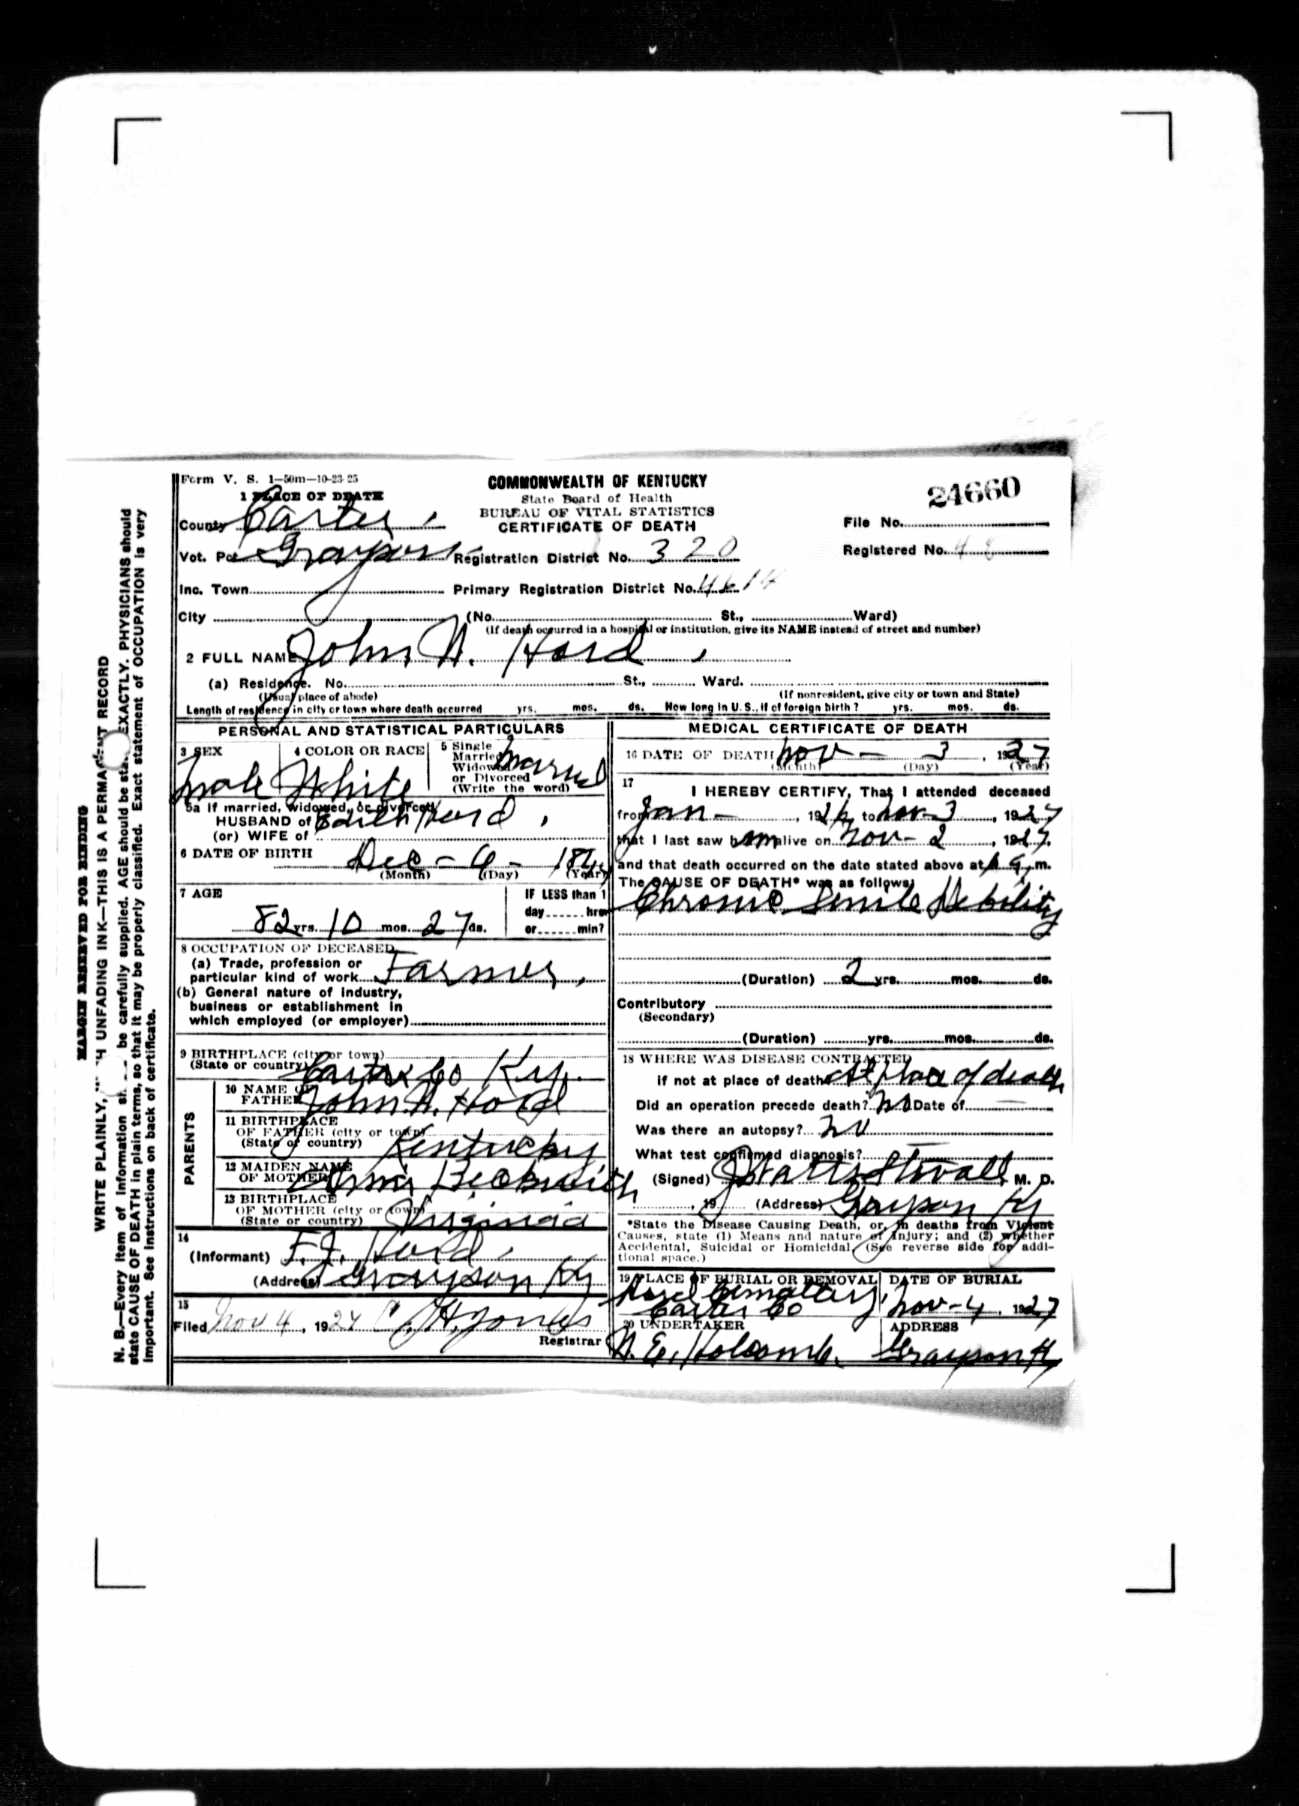 Form V. S. 1—50m—10-23-25
COMMONWEALTH OF KENTUCKY
State Board of Health
BUREAU OF VITAL STATISTICS
CERTIFICATE OF DEATH
24660
1 PLACE OF DEATH
County Carter
File No.
Vot. Pct Grayson Registration District No. 320
Registered No. 48
Inc. Town Primary Registration District No. 4614
City (No. St., Ward)
(If death occurred in a hospital or institution, give its NAME instead of street and number)
2 FULL NAME John N. Hord
(a) Residence. No. St., Ward.
(Usual place of abode) (If nonresident, give city or town and State)
Length of residence in city or town where death occurred yrs. mos. ds. How long in U.S., if of foreign birth? yrs. mos. ds.
PERSONAL AND STATISTICAL PARTICULARS
3 SEX
male
4 COLOR OR RACE
White
5 Single
Married
Widowed
or Divorced
(Write the word)
married
5a If married, widowed, or divorced
HUSBAND of Edith Hord
(or) WIFE of
6 DATE OF BIRTH Dec - 6 - 184
(Month) (Day) (Year)
7 AGE
82 yrs. 10 mos. 27 ds.
IF LESS than 1
day hrs
or min?
8 OCCUPATION OF DECEASED
(a) Trade, profession or
particular kind of work Farmer
(b) General nature of industry,
business or establishment in
which employed (or employer)
9 BIRTHPLACE (city or town)
(State or country) Carter Co Ky.
PARENTS
10 NAME OF
FATHER John N. Hord
11 BIRTHPLACE
OF FATHER (city or town)
(State or country) Kentucky
12 MAIDEN NAME
OF MOTHER Beckwith
13 BIRTHPLACE
OF MOTHER (city or town)
(State or country) Virginia
14
(Informant) F. J. Hord
(Address) Grayson Ky
15
Filed Nov 4, 1927 Jones
Registrar
MEDICAL CERTIFICATE OF DEATH
16 DATE OF DEATH Nov - 3, 1927
(Month) (Day) (Year)
17
I HEREBY CERTIFY, That I attended deceased
from Jan - , 19 to Nov-3, 1927
that I last saw him alive on Nov- 2, 1927,
and that death occurred on the date stated above at m.
The CAUSE OF DEATH* was as follows:
Chronic Senile Debility
(Duration) 2 yrs. mos. ds.
Contributory
(Secondary)
(Duration) yrs. mos. ds.
18 WHERE WAS DISEASE CONTRACTED
if not at place of death? At place of death
Did an operation precede death? No Date of
Was there an autopsy? No
What test confirmed diagnosis?
(Signed) J Watts Stovall M. D.
, 19 (Address) Grayson Ky
*State the Disease Causing Death, or, in deaths from Violent
Causes, state (1) Means and nature of Injury; and (2) whether
Accidental, Suicidal or Homicidal. (See reverse side for addi-
tional space.)
19 PLACE OF BURIAL OR REMOVAL
Hord Cemetary,
Carter Co
DATE OF BURIAL
Nov-4, 1927
20 UNDERTAKER
N. E. Holcomb.
ADDRESS
Grayson Ky
MARGIN RESERVED FOR BINDING
WRITE PLAINLY, UNFADING INK—THIS IS A PERMANENT RECORD
N. B.—Every item of information be carefully supplied. AGE should be EXACTLY. PHYSICIANS should
state CAUSE OF DEATH in plain terms, so that it may be properly classified. Exact statement of OCCUPATION is very
important. See instructions on back of certificate.